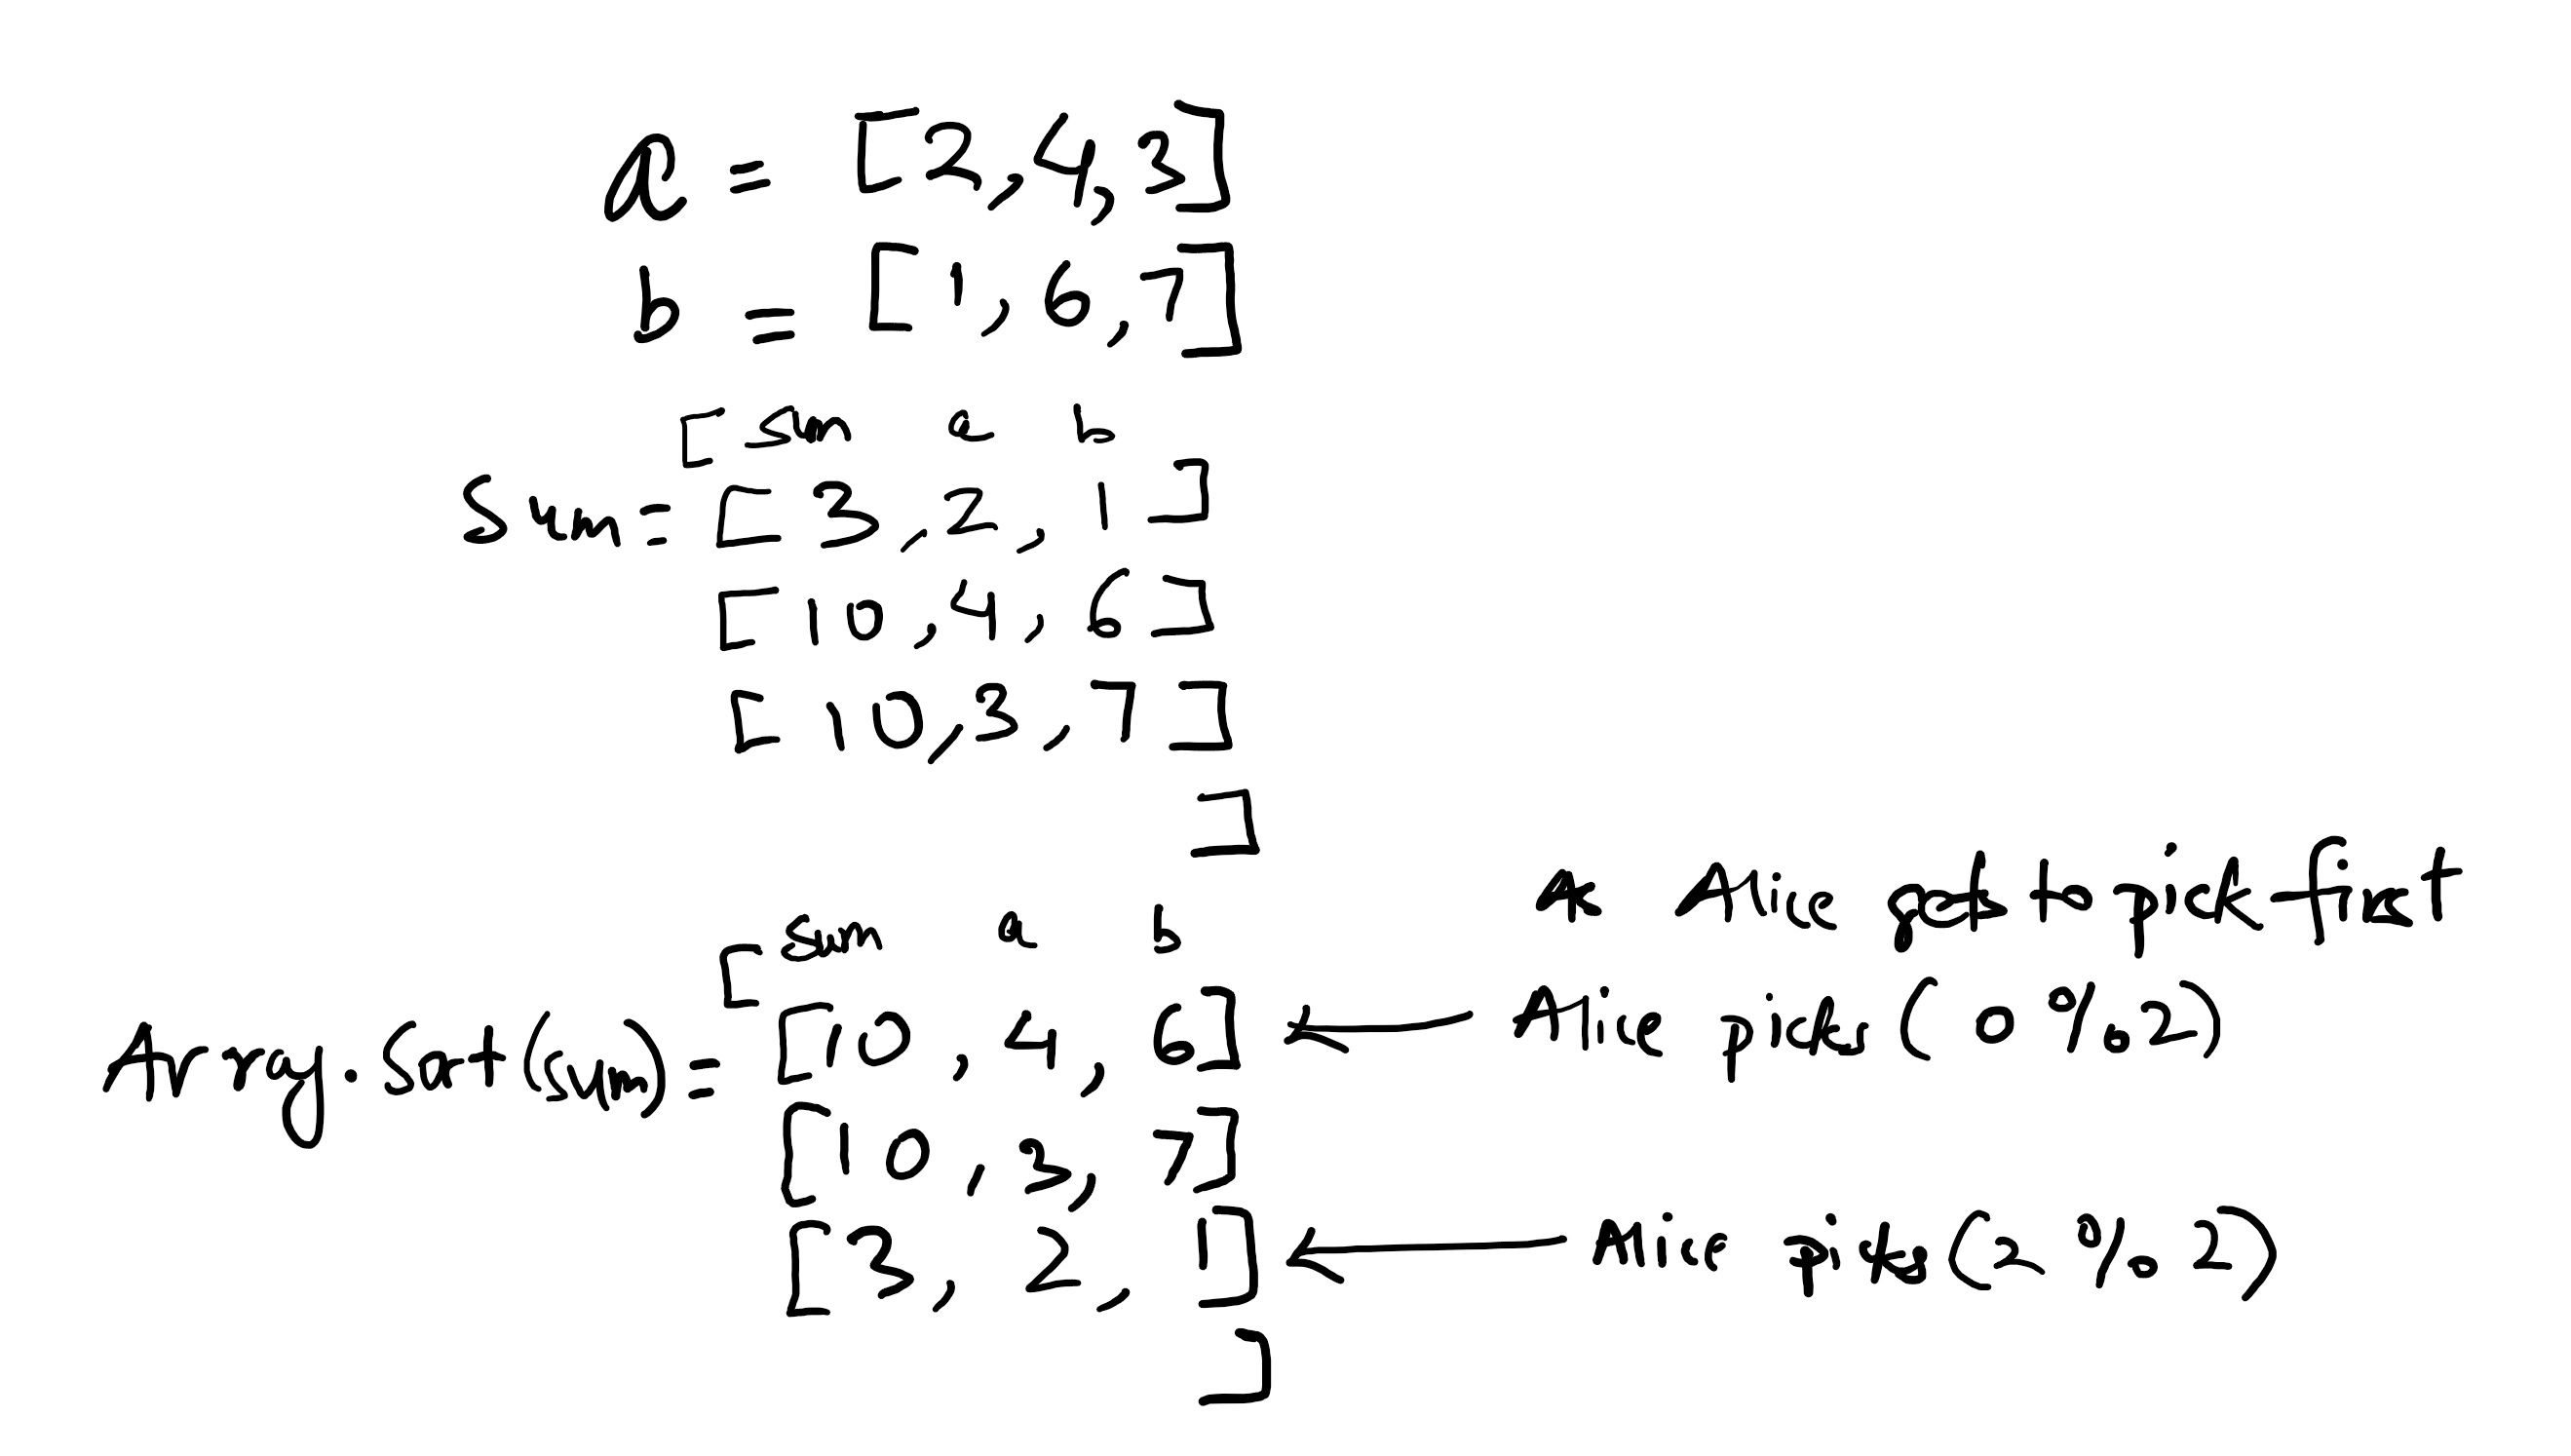 a = [2,4,3]
b = [1,6,7]
[ sum a b
Sum= [ 3,2,1 ]
[ 10,4,6 ]
[ 10,3,7 ]
]
Alice gets to pick first
[ sum a b
Array.Sort(sum)= [10,4,6] ← Alice picks (0%2)
[10,3,7]
[3,2,1] ← Alice picks (2%2)
]